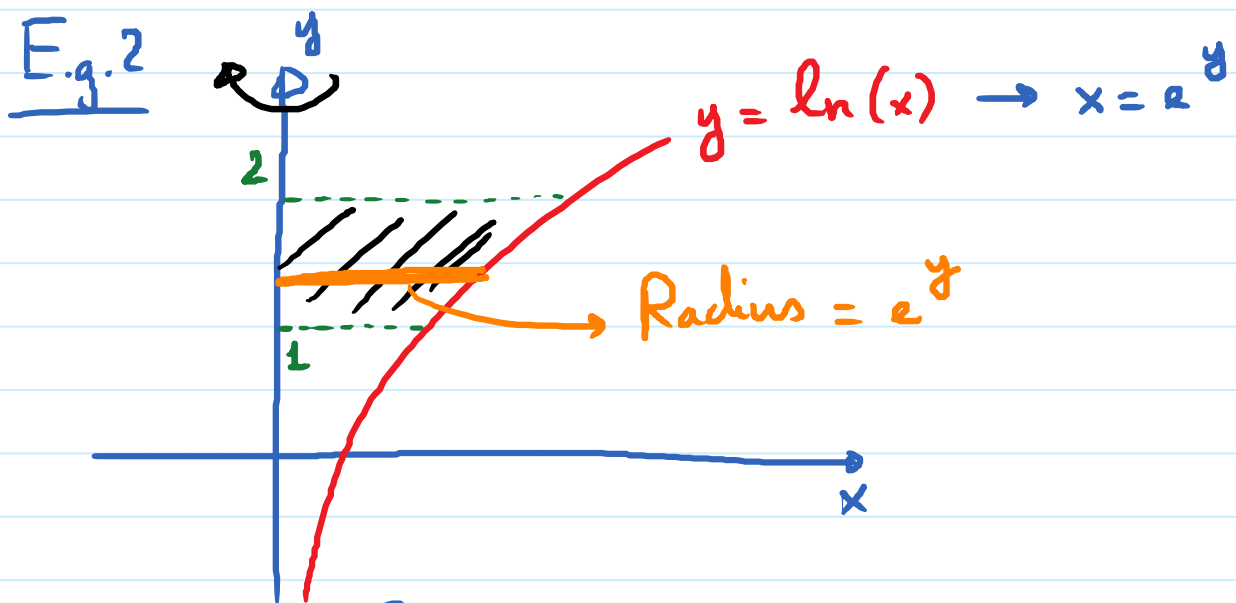 E.g.2
y
y = ln(x) → x = e^y
2
Radius = e^y
1
x